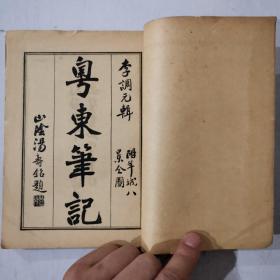 李調元輯
附羊城八
景全圖
粵東筆記
山陰湯壽銘題